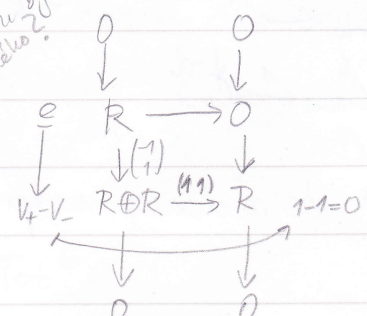 0 0
e R → 0
↓ (-1
1)
V₊-V₋ R⊕R (1 1) → R 1-1=0
0 0